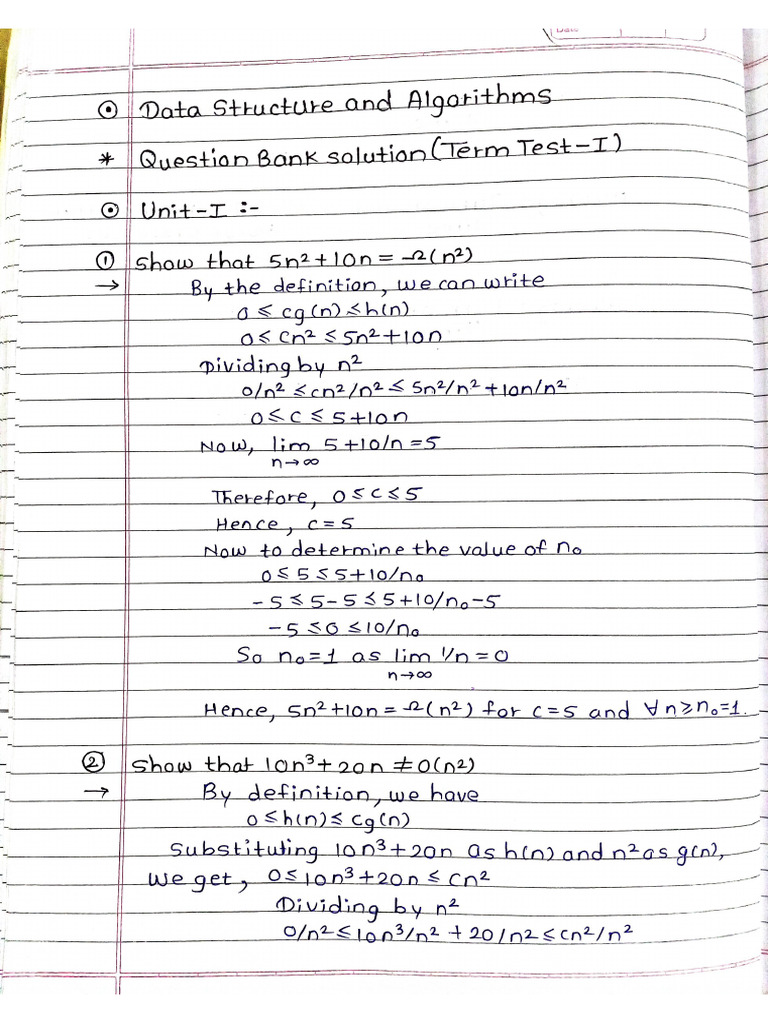 Date
⊙ Data Structure and Algorithms
* Question Bank solution (Term Test-I)
⊙ Unit-I :-
① Show that 5n²+10n = Ω(n²)
→ By the definition, we can write
0 ≤ cg(n) ≤ h(n)
0 ≤ Cn² ≤ 5n²+10n
Dividing by n²
0/n² ≤ cn²/n² ≤ 5n²/n² + 10n/n²
0 ≤ C ≤ 5+10n
Now, lim 5+10/n = 5
n→∞
Therefore, 0 ≤ C ≤ 5
Hence, C = 5
Now to determine the value of n₀
0 ≤ 5 ≤ 5+10/n₀
-5 ≤ 5-5 ≤ 5+10/n₀-5
-5 ≤ 0 ≤ 10/n₀
So n₀=1 as lim 1/n = 0
n→∞
Hence, 5n²+10n = Ω(n²) for C=5 and ∀ n ≥ n₀=1.
② Show that 10n³+20n ≠ O(n²)
→ By definition, we have
0 ≤ h(n) ≤ cg(n)
Substituting 10n³+20n as h(n) and n² as g(n),
we get, 0 ≤ 10n³+20n ≤ Cn²
Dividing by n²
0/n² ≤ 10n³/n² + 20/n² ≤ cn²/n²